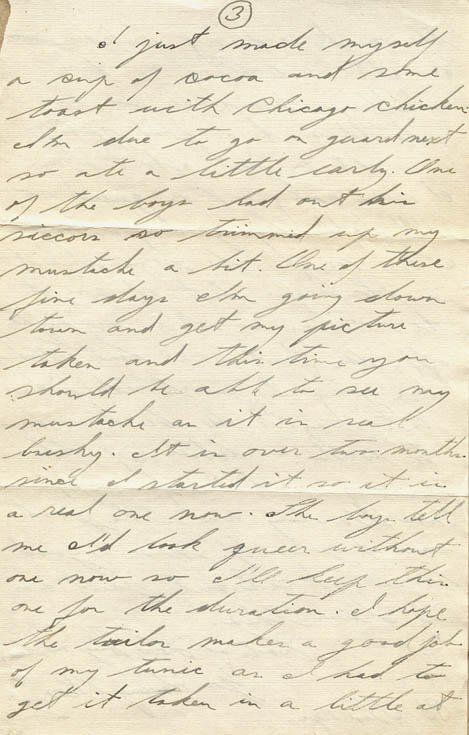 3
I just made myself
a cup of cocoa and some
toast with Chicago chicken
I'm due to go on guard next
so ate a little early. One
of the boys had out his
siccors so trimmed up my
mustache a bit. One of these
fine days I'm going down
town and get my picture
taken and this time you
should be able to see my
mustache as it is real
bushy. It is over two months
since I started it so it is
a real one now. The boys tell
me I'd look queer without
one now so I'll keep this
one for the duration. I hope
the tailor makes a good job
of my tunic as I had to
get it taken in a little at